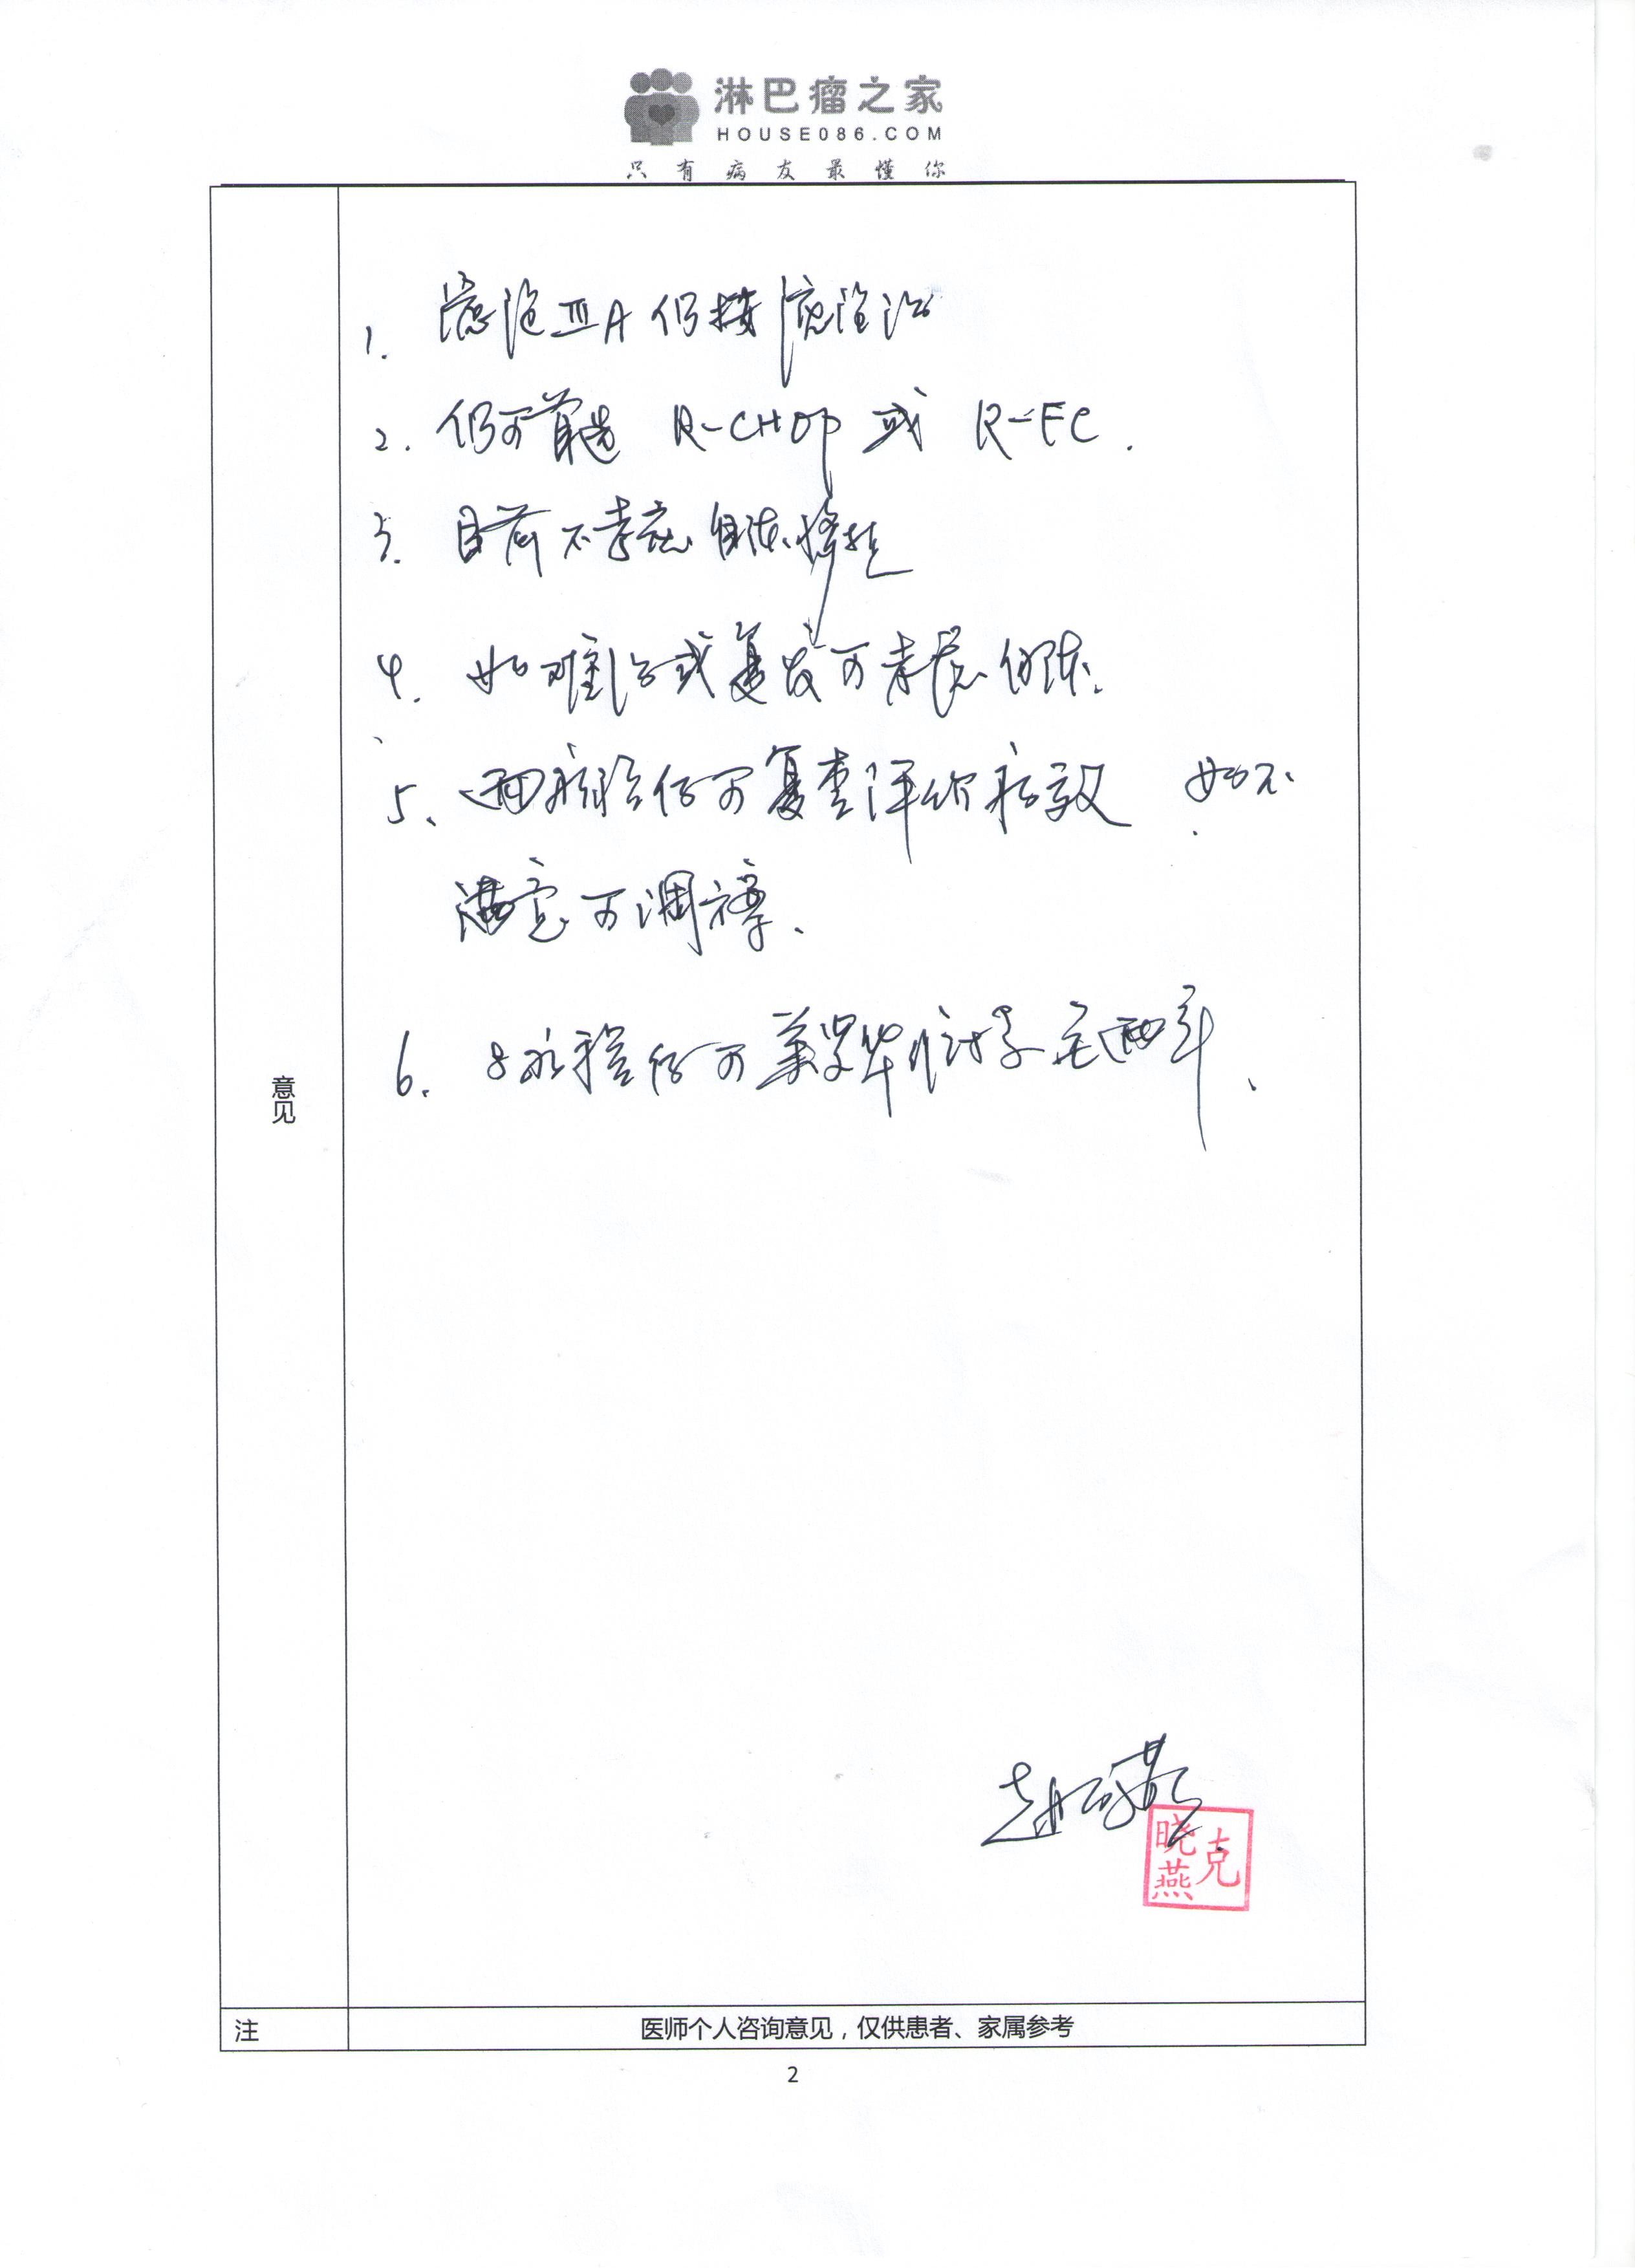 淋巴瘤之家
HOUSE086.COM
只有病友最懂你
1. 滤泡ⅢA仍按滤泡治
2. 仍可首选 R-CHOP 或 R-FC.
3. 目前不考虑自体移植
4. 如难治或复发可考虑自体.
5、两疗程后可复查评价疗效 如不
满意可调整.
6、8疗程后可美罗华维持至两年.
意见
克晓燕
注
医师个人咨询意见，仅供患者、家属参考
2